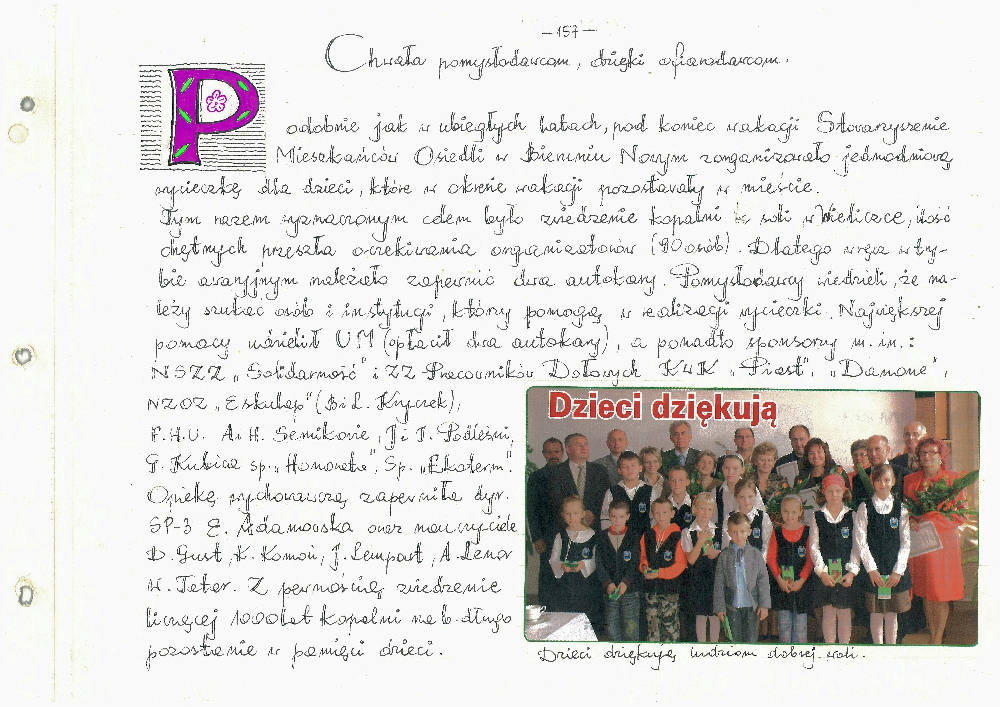 - 157 -
Chwała pomysłodawcom, dzięki ofiarodawcom.
Podobnie jak w ubiegłych latach, pod koniec wakacji Stowarzyszenie
Mieszkańców Osiedli w Bieruniu Nowym zorganizowało jednodniową
wycieczkę dla dzieci, które w okresie wakacji pozostawały w mieście.
Tym razem wyznaczonym celem było zwiedzenie kopalni soli w Wieliczce, ilość
chętnych przeszła oczekiwania organizatorów (90 osób). Dlatego wręcz w try-
bie awaryjnym należało zapewnić dwa autokary. Pomysłodawcy wiedzieli, że na-
leży szukać osób i instytucji, którzy pomogą w realizacji wycieczki. Największej
pomocy udzielił UM (opłacił dwa autokary), a ponadto sponsorzy m.in.:
NSZZ „Solidarność" i ZZ Pracowników Dołowych KWK „Piast", „Danone",
NZOZ „Eskulap" (B i L. Kryczek),
F.H.U. A i H. Semikowie, J i T. Podleśni,
G. Kubica sp. „Homoneta", Sp. „Ekoterm".
Opiekę wychowawczą zapewniła dyr.
SP-3 E. Adamowska oraz nauczyciele
D. Gust, K. Komoń, J. Lempart, A. Lenar
W. Teter. Z pewnością zwiedzenie
liczącej 1000 lat kopalni na b. długo
pozostanie w pamięci dzieci.
Dzieci dziękują
Dzieci dziękują ludziom dobrej woli.